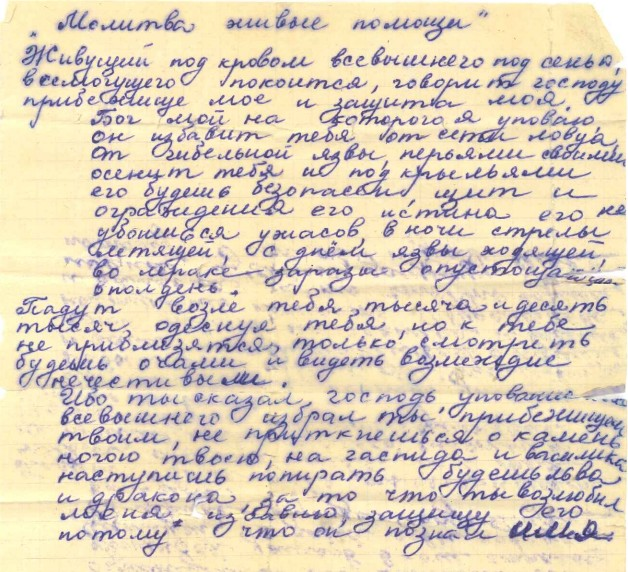 "Молитва живые помощи"
"Живущий под кровом всевышнего под сенью,
всемогущего покоится, говорит господу
прибежище мое и защита моя,
Бог мой на которого я уповаю
он избавит тебя от сети ловца,
от гибельной язвы, перьями своими
осенит тебя и под крыльями
его будешь безопасен, щит и
ограждения его истина его не
убоишься ужасов в ночи стрелы
летящей, с днём язвы ходящей,
во мраке заразы опустоша
в полдень.
Падут возле тебя тысяча и десять
тысяч одесную тебя, но к тебе
не приблизятся, только смотреть
будешь очами и видеть возмездие
нечестивыми.
Ибо ты сказал, господь упование
всевышнего избрал ты, прибежищем
твоим, не приткнешься о камень
ногою твоею, на гаспида и василика
наступишь попирать будешь льва
и дракона за то что ты возлюбил
меня избавлю, защищу его
потому что он познал имя